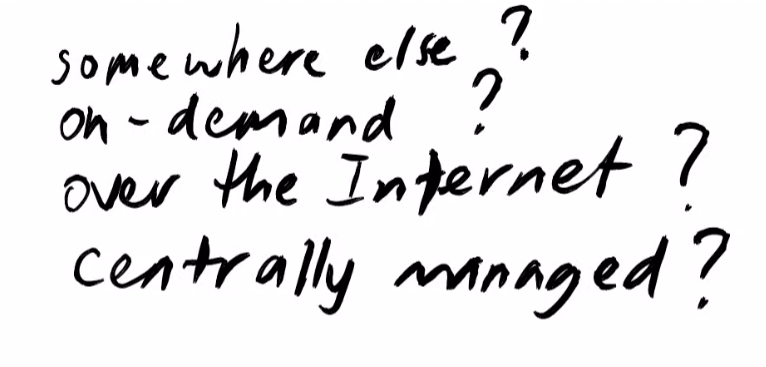 somewhere else ?
on-demand ?
over the Internet ?
centrally managed ?